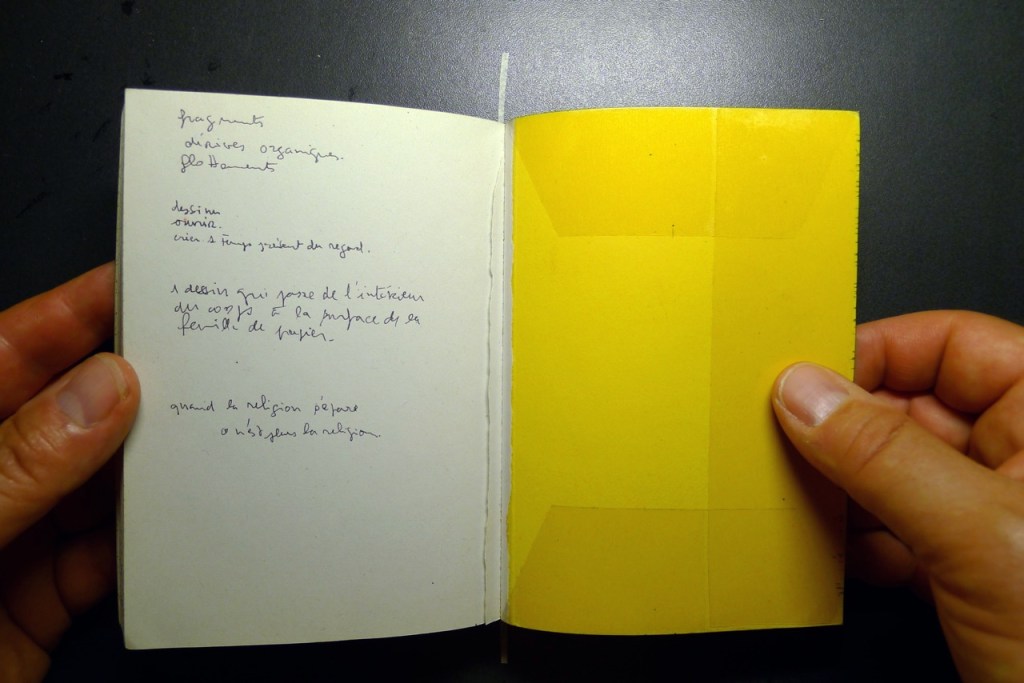 fragments
dérives organiques.
flottements
dessiner
ouvrir.
créer 1 temps présent du regard.
1 dessin qui passe de l'intérieur
du corps à la surface de la
feuille de papier.
quand la religion sépare
la religion